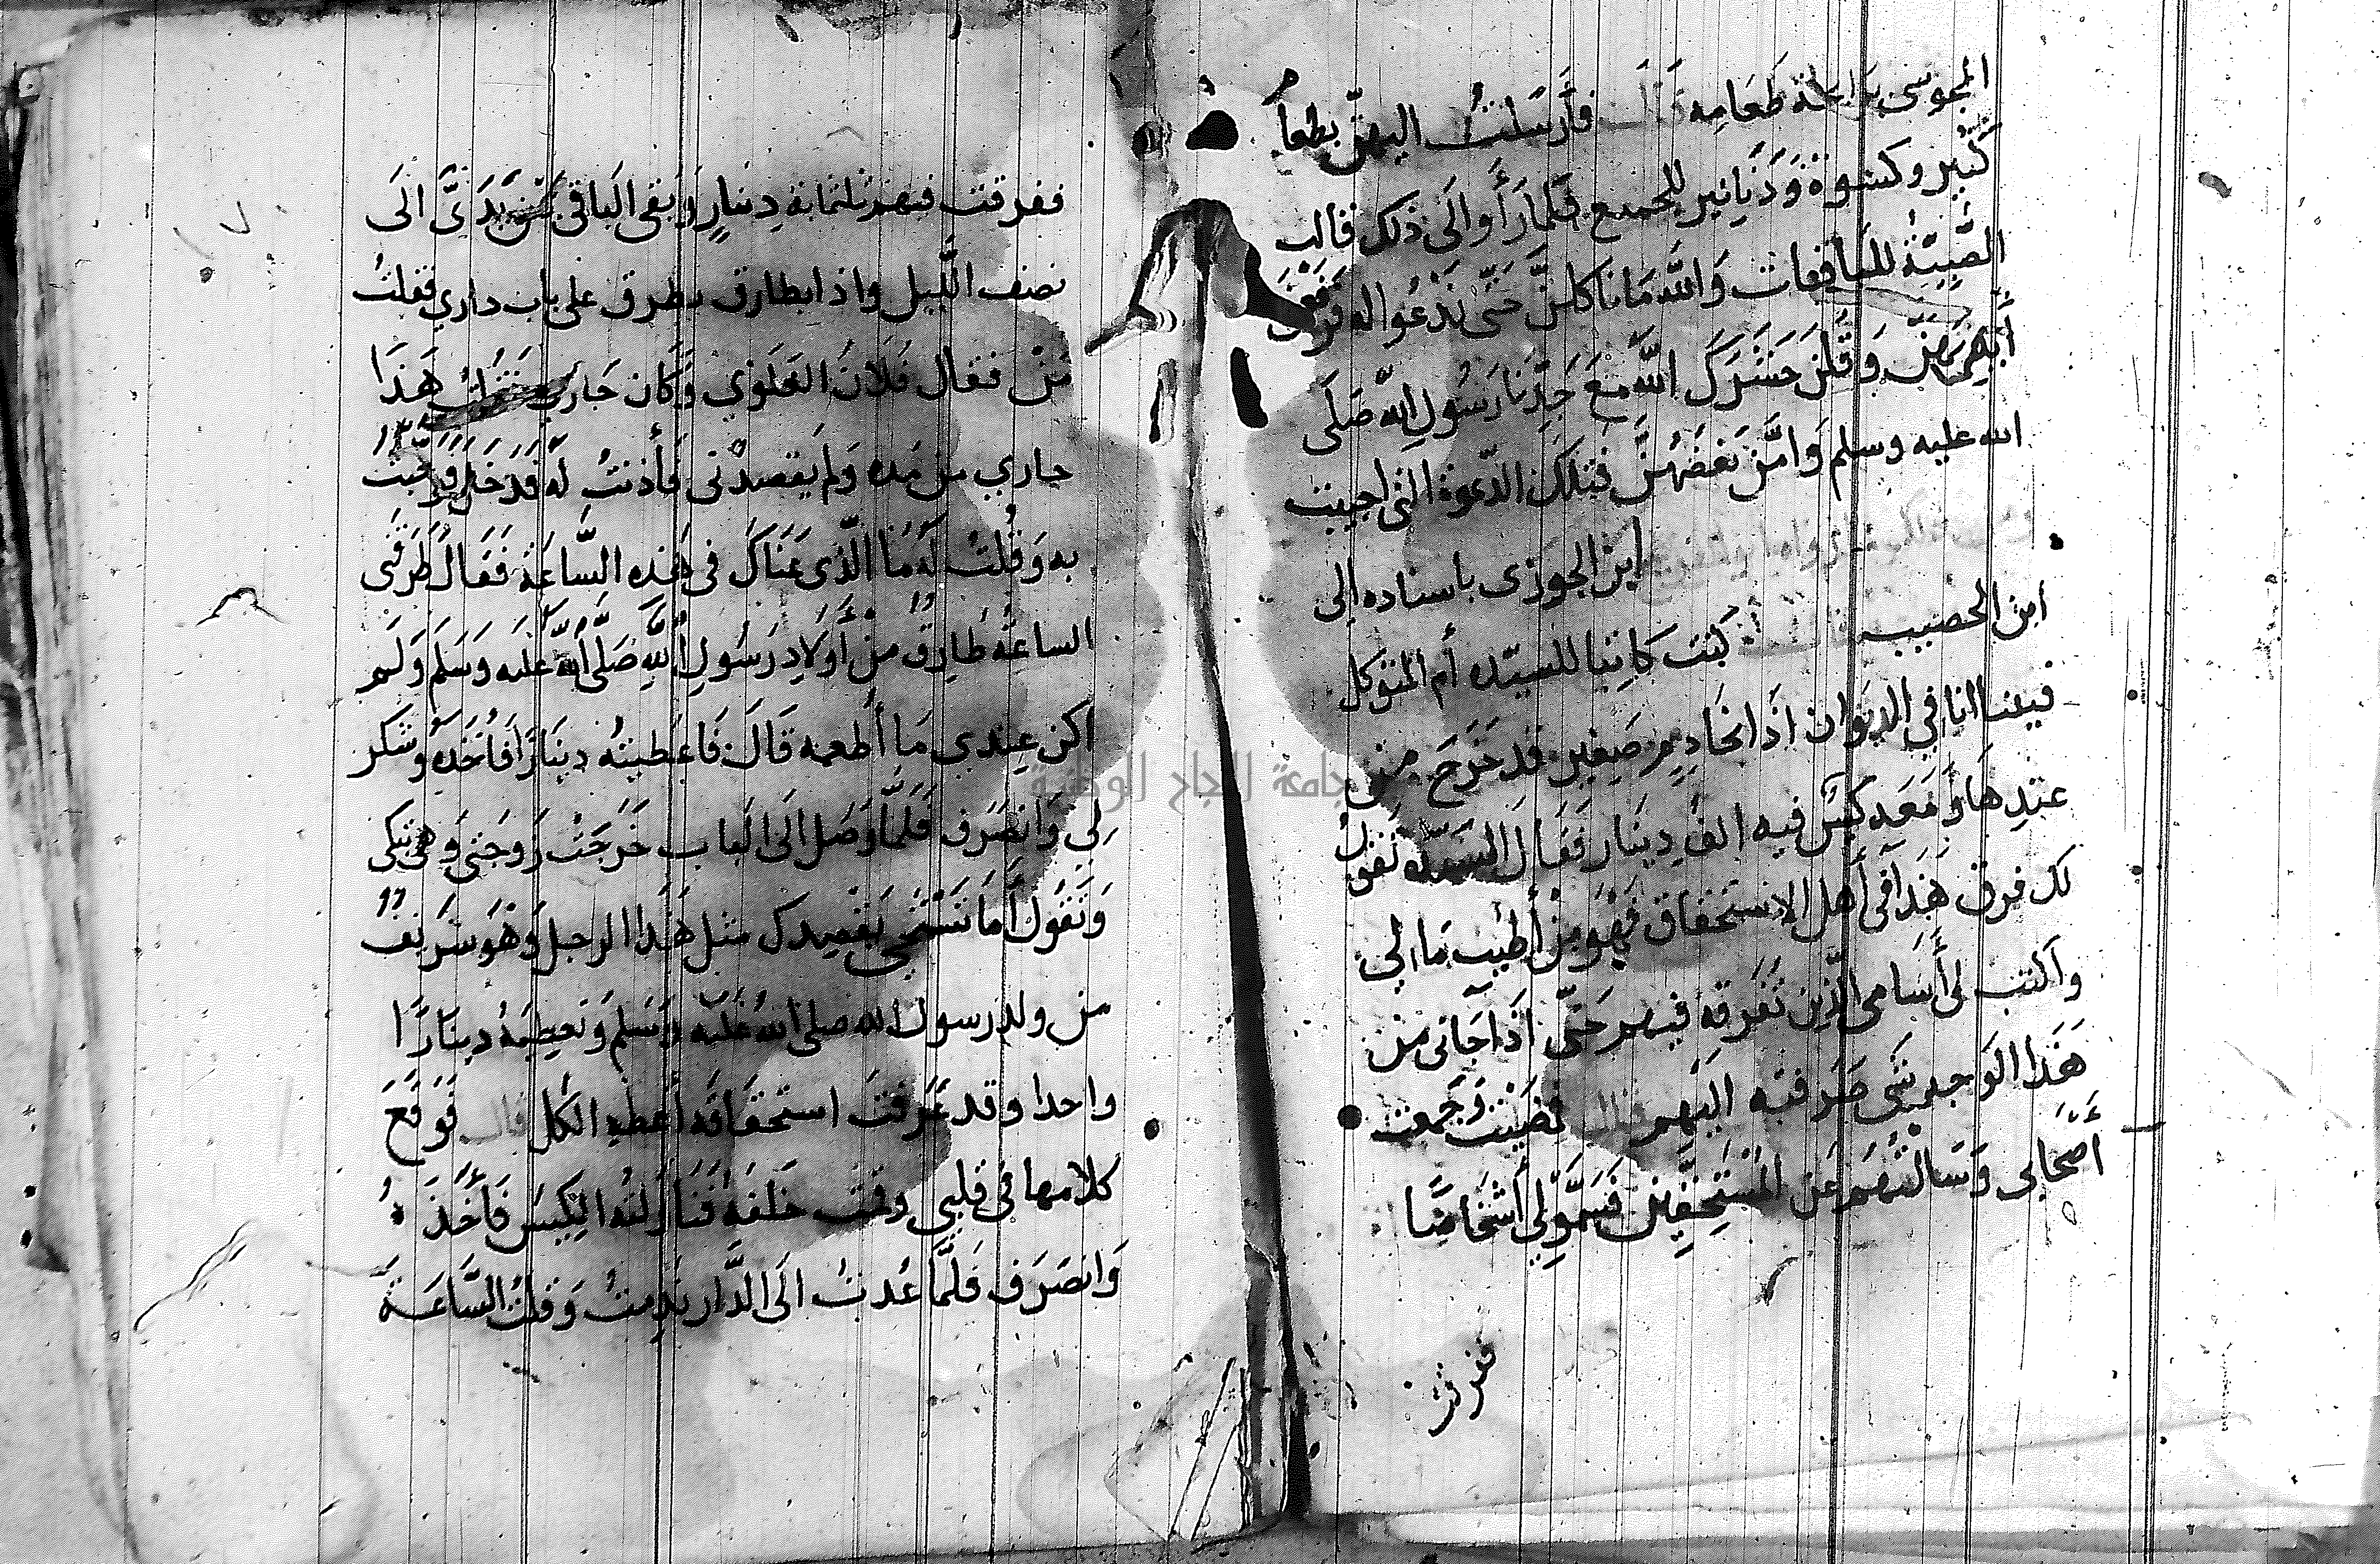 المجوسى برايحة طَعَامِه قال فأرسلتُ اليهنّ بطعاٍم
كثير وكسْوة وَدَنانير للجميع فلمّا رَأوا الَى ذلك قالت
الصَّبِيَّةُ للباقيات وَالله مَا ناكلنَّ حَتّى نَدْعُوا له فَرفعْنَ
أيْديَهنّ وَقُلنَ حَشَرَكَ اللَّه مَعَ جَدِّنا رَسُولِ الله صَلّى
الله عليه وسلم وَامَّن بَعْضهُنَّ فتلك الدّعوة التى اجيبت
ابن الجوزى باسناده الى
ابن الخصيب قال كنتُ كاتبا للسيّده أم المتوكل
فبينا انا في الديوان اذا بخادِمٍ صَغيرٍ قد خَرَجَ من
عندِهَا وَمَعَه كيسٌ فيه الف دينار فَقَال السَيّده تقولُ
لك فرق هَذا فى أهل الاستحقاق فهُو مِن أطيب مَالي
وأكتب لى أسَامى الّذين تفَرقه فيهم حَتّى اذا جَآنى من
هَذا الوَجه شَى صَرفته اليهم قال فمضَيْت وَجمعت
أصْحابى وَسَالتهُم عَن المُسْتَحِقّين فَسَمَّوا لي أشْخاصًا
ففرقت
ففرقت فيهم ثلثماية دينارٍ وَبَقى الباقى بَيْن يَدَىَّ الَى
نصف الَّليل واذا بطارق يطرق على باب داري فقلتُ
مَنْ فقال فلان العَلوي وَكَان جَاري فقُلتُ هَذا
جاري من مده وَلم يقصدْنى فأذنتُ لَه فَدَخَل فرحّبتُ
به وَقُلتُ لهُ مَا الَّذى عَنَاكَ فى هَذه السَّاعَة فَقَالَ طَرَقَنى
الساعَة طارِقٌ مِنْ أوْلاد رَسُولِ اللهِ صَلَّى اللهُ عَليْه وَسَلمَ وَلَم
اكن عِندي مَا أطعمه قَالَ فَاعْطيته دينَارًا فَاخذَه وَشكر
لِي وَانصَرف فَلَمَّا وَصَل الَى الباب خَرَجَتْ زَوجَتى وَهى تبكى
وَتَقُول أمَا تَسْتحى يَقصِدك مثل هَذا الرجل وَهُوَ شَريفٌ
من ولد رسول الله صلى الله عَليه وَسَلم وَتعطيهُ دينارًا
واحدا وقد عَرَفتَ استحقاقه أعطهِ الكل قال فوقعَ
كلامها فى قلبي وقمت خلفه فَناولته الكِيسَ فأخَذَهُ
وَانصَرَف فلمَّا عُدتُ الَى الدّار نَدِمتُ وَقلتُ السَّاعَةَ
جامعة النجاح الوطنية